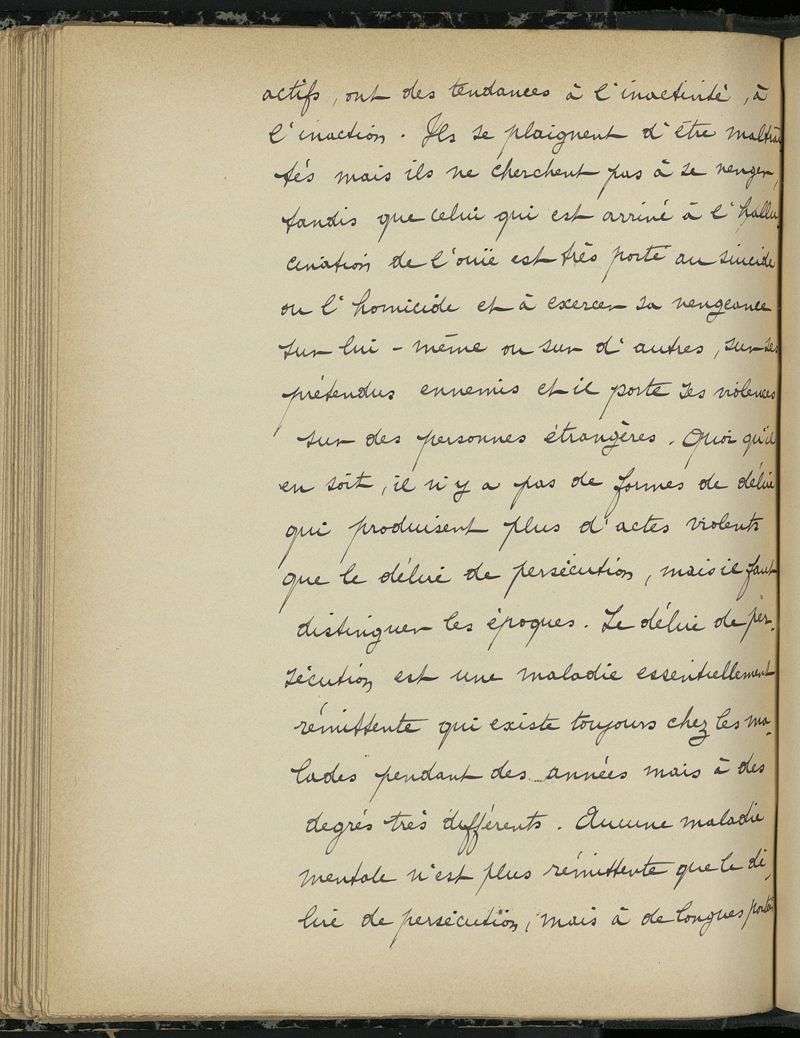 actifs, ont des tendances à l'inactivité, à
l'inaction. Ils se plaignent d'être maltrai
tés mais ils ne cherchent pas à se venger,
tandis que celui qui est arrivé à l'hallu
cination de l'ouïe est très porté au suicide
ou l'homicide et à exercer sa vengeance
sur lui-même ou sur d'autres, sur ses
prétendus ennemis et il porte ses violences
sur des personnes étrangères. Quoi qu'il
en soit, il n'y a pas de formes de délire
qui produisent plus d'actes violents
que le délire de persécution, mais il faut
distinguer les époques. Le délire de per-
sécution est une maladie essentiellement
rémittente qui existe toujours chez les ma-
lades pendant des années mais à des
degrés très différents. Aucune maladie
mentale n'est plus rémittente que le dé-
lire de persécution, mais à de longues